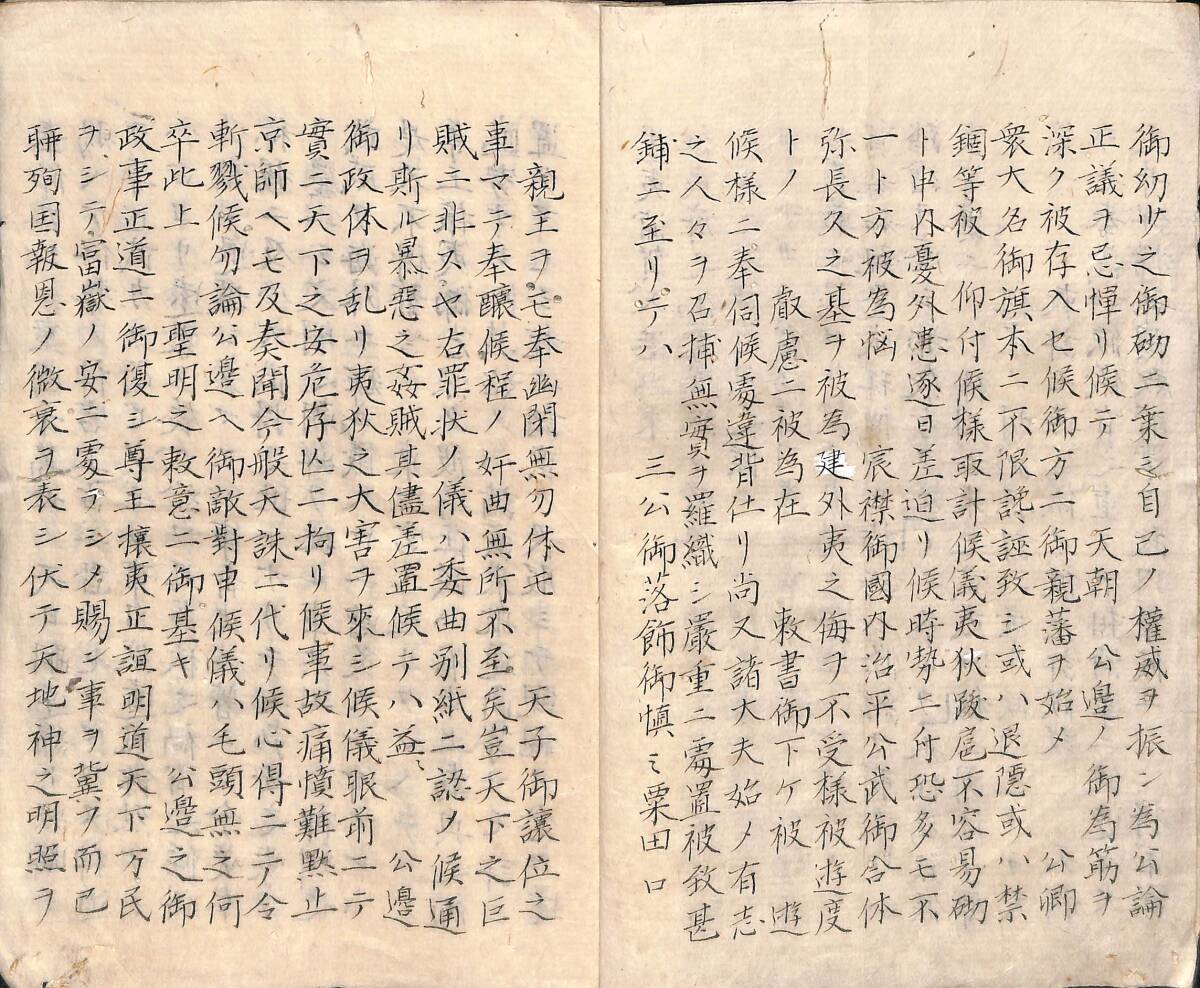 御幼少之御砌ニ乗シ自己ノ權威ヲ振ン為公論
正議ヲ忌憚リ候テ　天朝　公邊ノ御為筋ヲ
深ク被存入セ候御方ニ御親藩ヲ始メ　公卿
衆大名御旗本ニ不限讒誣致シ或ハ退隱或ハ禁
錮等被　仰付候様取計候儀夷狄跋扈不容易砌
ト申内憂外患逐日差迫リ候時勢ニ付恐多モ不
一ト方被為悩　宸襟御國内治平公武御合体
弥長久之基ヲ被為建外夷之侮ヲ不受様被遊度
トノ　叡慮ニ被為在　敕書御下ケ被　遊
候様ニ奉伺候處違背仕リ尚又諸大夫始メ有志
之人々ヲ召捕無實ヲ羅織シ嚴重ニ處置被致甚
鋪ニ至リテハ　三公御落飾御慎ミ粟田口
親王ヲモ奉幽閉無勿体モ　天子御讓位之
事マテ奉釀候程ノ奸曲無所不至矣豈天下之巨
賊ニ非スヤ右罪状ノ儀ハ委曲別紙ニ認メ候通
リ斯ル暴惡之姦賊其儘差置候テハ益〻　公邊
御政体ヲ乱リ夷狄之大害ヲ來シ候儀眼前ニテ
實ニ天下之安危存亾ニ拘リ候事故痛憤難黙止
京師ヘモ及奏聞今般天誅ニ代リ候心得ニテ令
斬戮候勿論公邊ヘ御敵對申候儀ハ毛頭無之何
卒此上　聖明之敕意ニ御基キ　公邊之御
政事正道ニ御復シ尊王攘夷正誼明道天下万民
ヲシテ富嶽ノ安ニ處ラシメ賜ン事ヲ冀フ而已
聊殉国報恩ノ微衰ヲ表シ伏テ天地神之明照ヲ